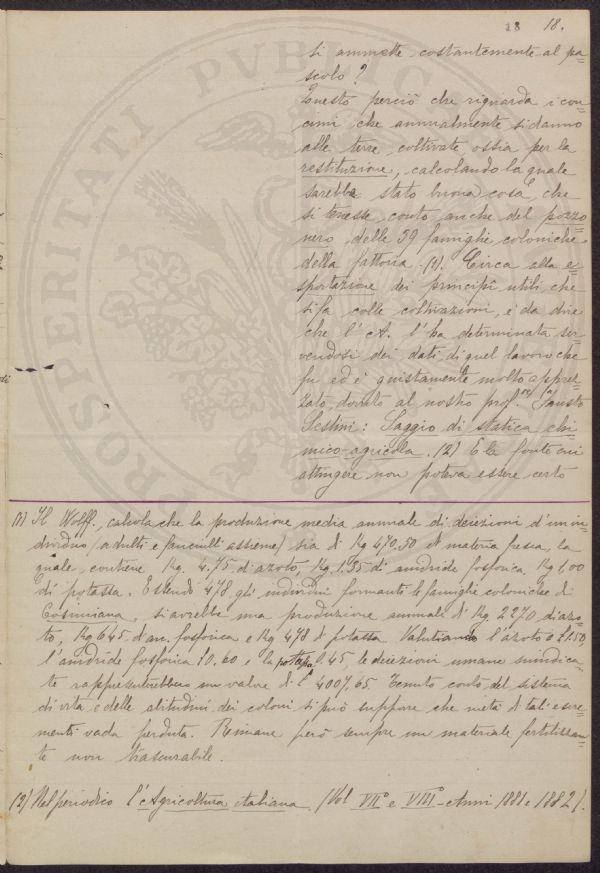 18 18.
si ammette costantemente al pa=
scolo?
Questo perciò che riguarda i con=
cimi che annualmente si danno
alle terre coltivate ossia per la
restituzione, calcolando la quale
sarebbe stato buona cosa che
si tenesse conto anche del pozzo
nero delle 39 famiglie coloniche
della fattoria (1). Circa alla e=
sportazione dei principî utili che
si fa colle coltivazioni, è da dire
che l'A. l'ha determinata ser=
vendosi dei dati di quel lavoro che
fu ed è giustamente molto apprez=
zato, dovuto al nostro prof.re Fausto
Sestini: Saggio di statica chi=
mico-agricola. (2) E la fonte cui
attingere non poteva essere certo
(1) Il Wolff, calcola che la produzione media annuale di deiezioni d'un in=
dividuo (adulti e fanciulli assieme) sia di Kg 470.50 di materia fresca, la
quale, contiene Kg. 4,75 d'azoto, Kg. 1.35 di anidride fosforica Kg 1,00
di potassa. Essendo 478 gli individui formanti le famiglie coloniche di
Cosimiana, si avrebbe una produzione annuale di Kg 2270 d'azo=
to, Kg 645 d'an. fosforica e Kg 478 di potassa. Valutiando l'azoto a £ 1.50,
l'anidride fosforica 0.60 e la potassa 0.45, le deiezioni umane suindica=
te rappresenterebbero un valore di £ 4007,65. Tenuto conto del sistema
di vita e delle abitudini dei coloni si può suppore che metà di tali escre=
menti vada perduta. Rimane però sempre un materiale fertilizzan=
te non trascurabile.
(2) Nel periodico l'Agricoltura italiana (Vol VII° e VIII° - Anni 1881 e 1882).
PROSPERITATI PUBLICAE